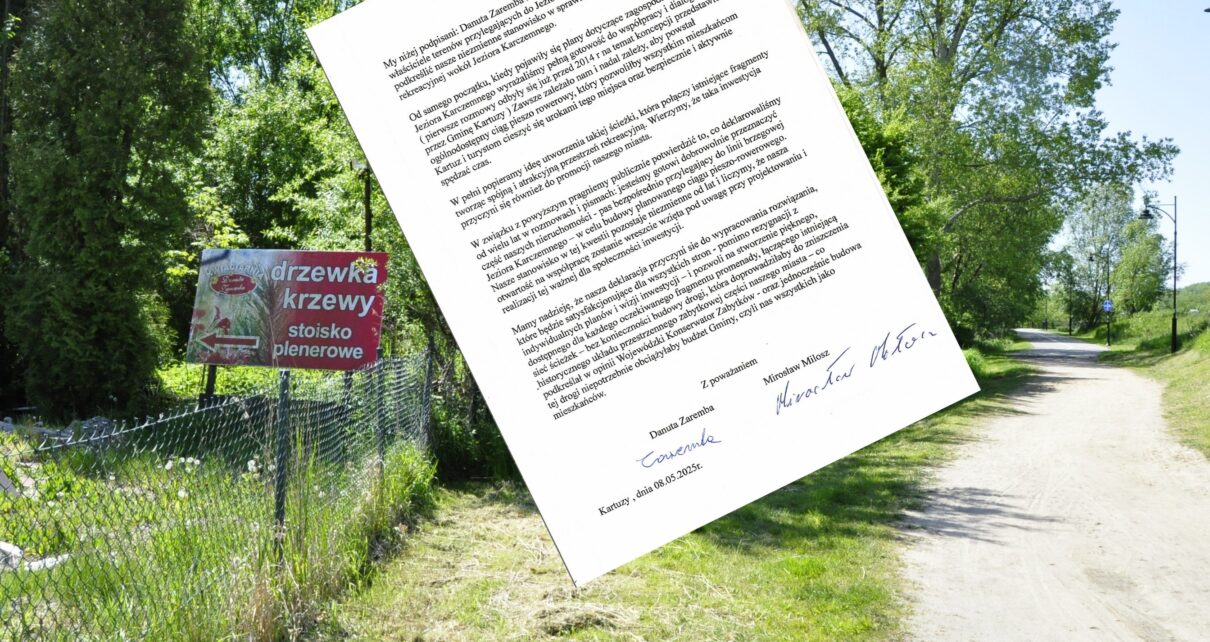 drzewka
krzewy
stoisko
plenerowe
My niżej podpisani: Danuta Zaremba
właściciele terenów przylegających do Jezio
podkreślić nasze niezmienne stanowisko w spraw
rekreacyjnej wokół Jeziora Karczemnego.
Od samego początku, kiedy pojawiły się plany dotyczące zagospo
Jeziora Karczemnego wyrażaliśmy pełną gotowość do współpracy i dialog
( pierwsze rozmowy odbyły się już przed 2014 r na temat koncepcji przedstawi
przez Gminę Kartuzy ) Zawsze zależało nam i nadal zależy, aby powstał
ogólnodostępny ciąg pieszo rowerowy, który pozwoliłby wszystkim mieszkańcom
Kartuz i turystom cieszyć się urokami tego miejsca oraz bezpiecznie i aktywnie
spędzać czas.
W pełni popieramy ideę utworzenia takiej ścieżki, która połączy istniejące fragmenty
tworząc spójną i atrakcyjną przestrzeń rekreacyjną. Wierzymy, że taka inwestycja
przyczyni się również do promocji naszego miasta.
W związku z powyższym pragniemy publicznie potwierdzić to, co deklarowaliśmy
od wielu lat w rozmowach i pismach: jesteśmy gotowi dobrowolnie przeznaczyć
część naszych nieruchomości - pas bezpośrednio przylegający do linii brzegowej
Jeziora Karczemnego – w celu budowy planowanego ciągu pieszo-rowerowego.
Nasze stanowisko w tej kwestii pozostaje niezmienne od lat i liczymy, że nasza
otwartość na współpracę zostanie wreszcie wzięta pod uwagę przy projektowaniu i
realizacji tej ważnej dla społeczności inwestycji.
Mamy nadzieję, że nasza deklaracja przyczyni sie do wypracowania rozwiązania,
które będzie satysfakcjonujące dla wszystkich stron - pomimo rezygnacji z
indywidualnych planów i wizji inwestycji – i pozwoli na stworzenie pięknego,
dostępnego dla każdego oczekiwanego fragmentu promenady, łączącego istniejącą
sieć ścieżek – bez konieczności budowy drogi, która doprowadziłaby do zniszczenia
.historycznego układu przestrzennego zabytkowej części naszego miasta – co
podkreślał w opinii Wojewódzki Konserwator Zabytków - oraz jednocześnie budowa
tej drogi niepotrzebnie obciążyłaby budżet Gminy, czyli nas wszystkich jako
mieszkańców.
Z poważaniem
Danuta Zaremba
Mirosław Miłosz
Zaremba
Mirosław Miłosz
Kartuzy , dnia 08.05.2025r.